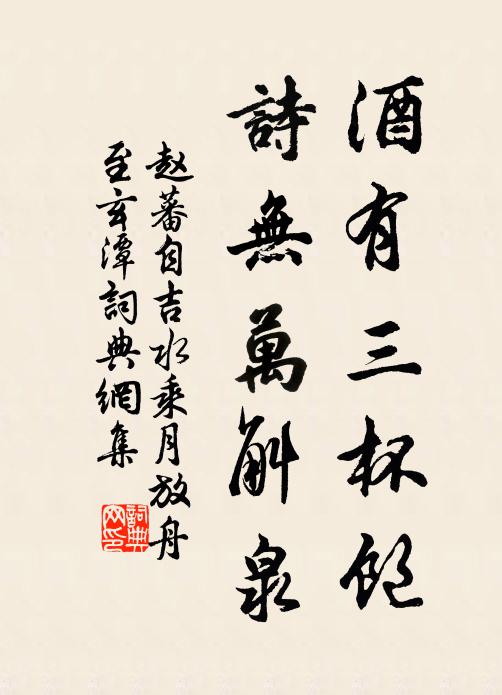 酒有三杯飽
詩無萬斛泉
赵蕃自吉水乘月放舟
至玄潭詞典網集
詞典
网印